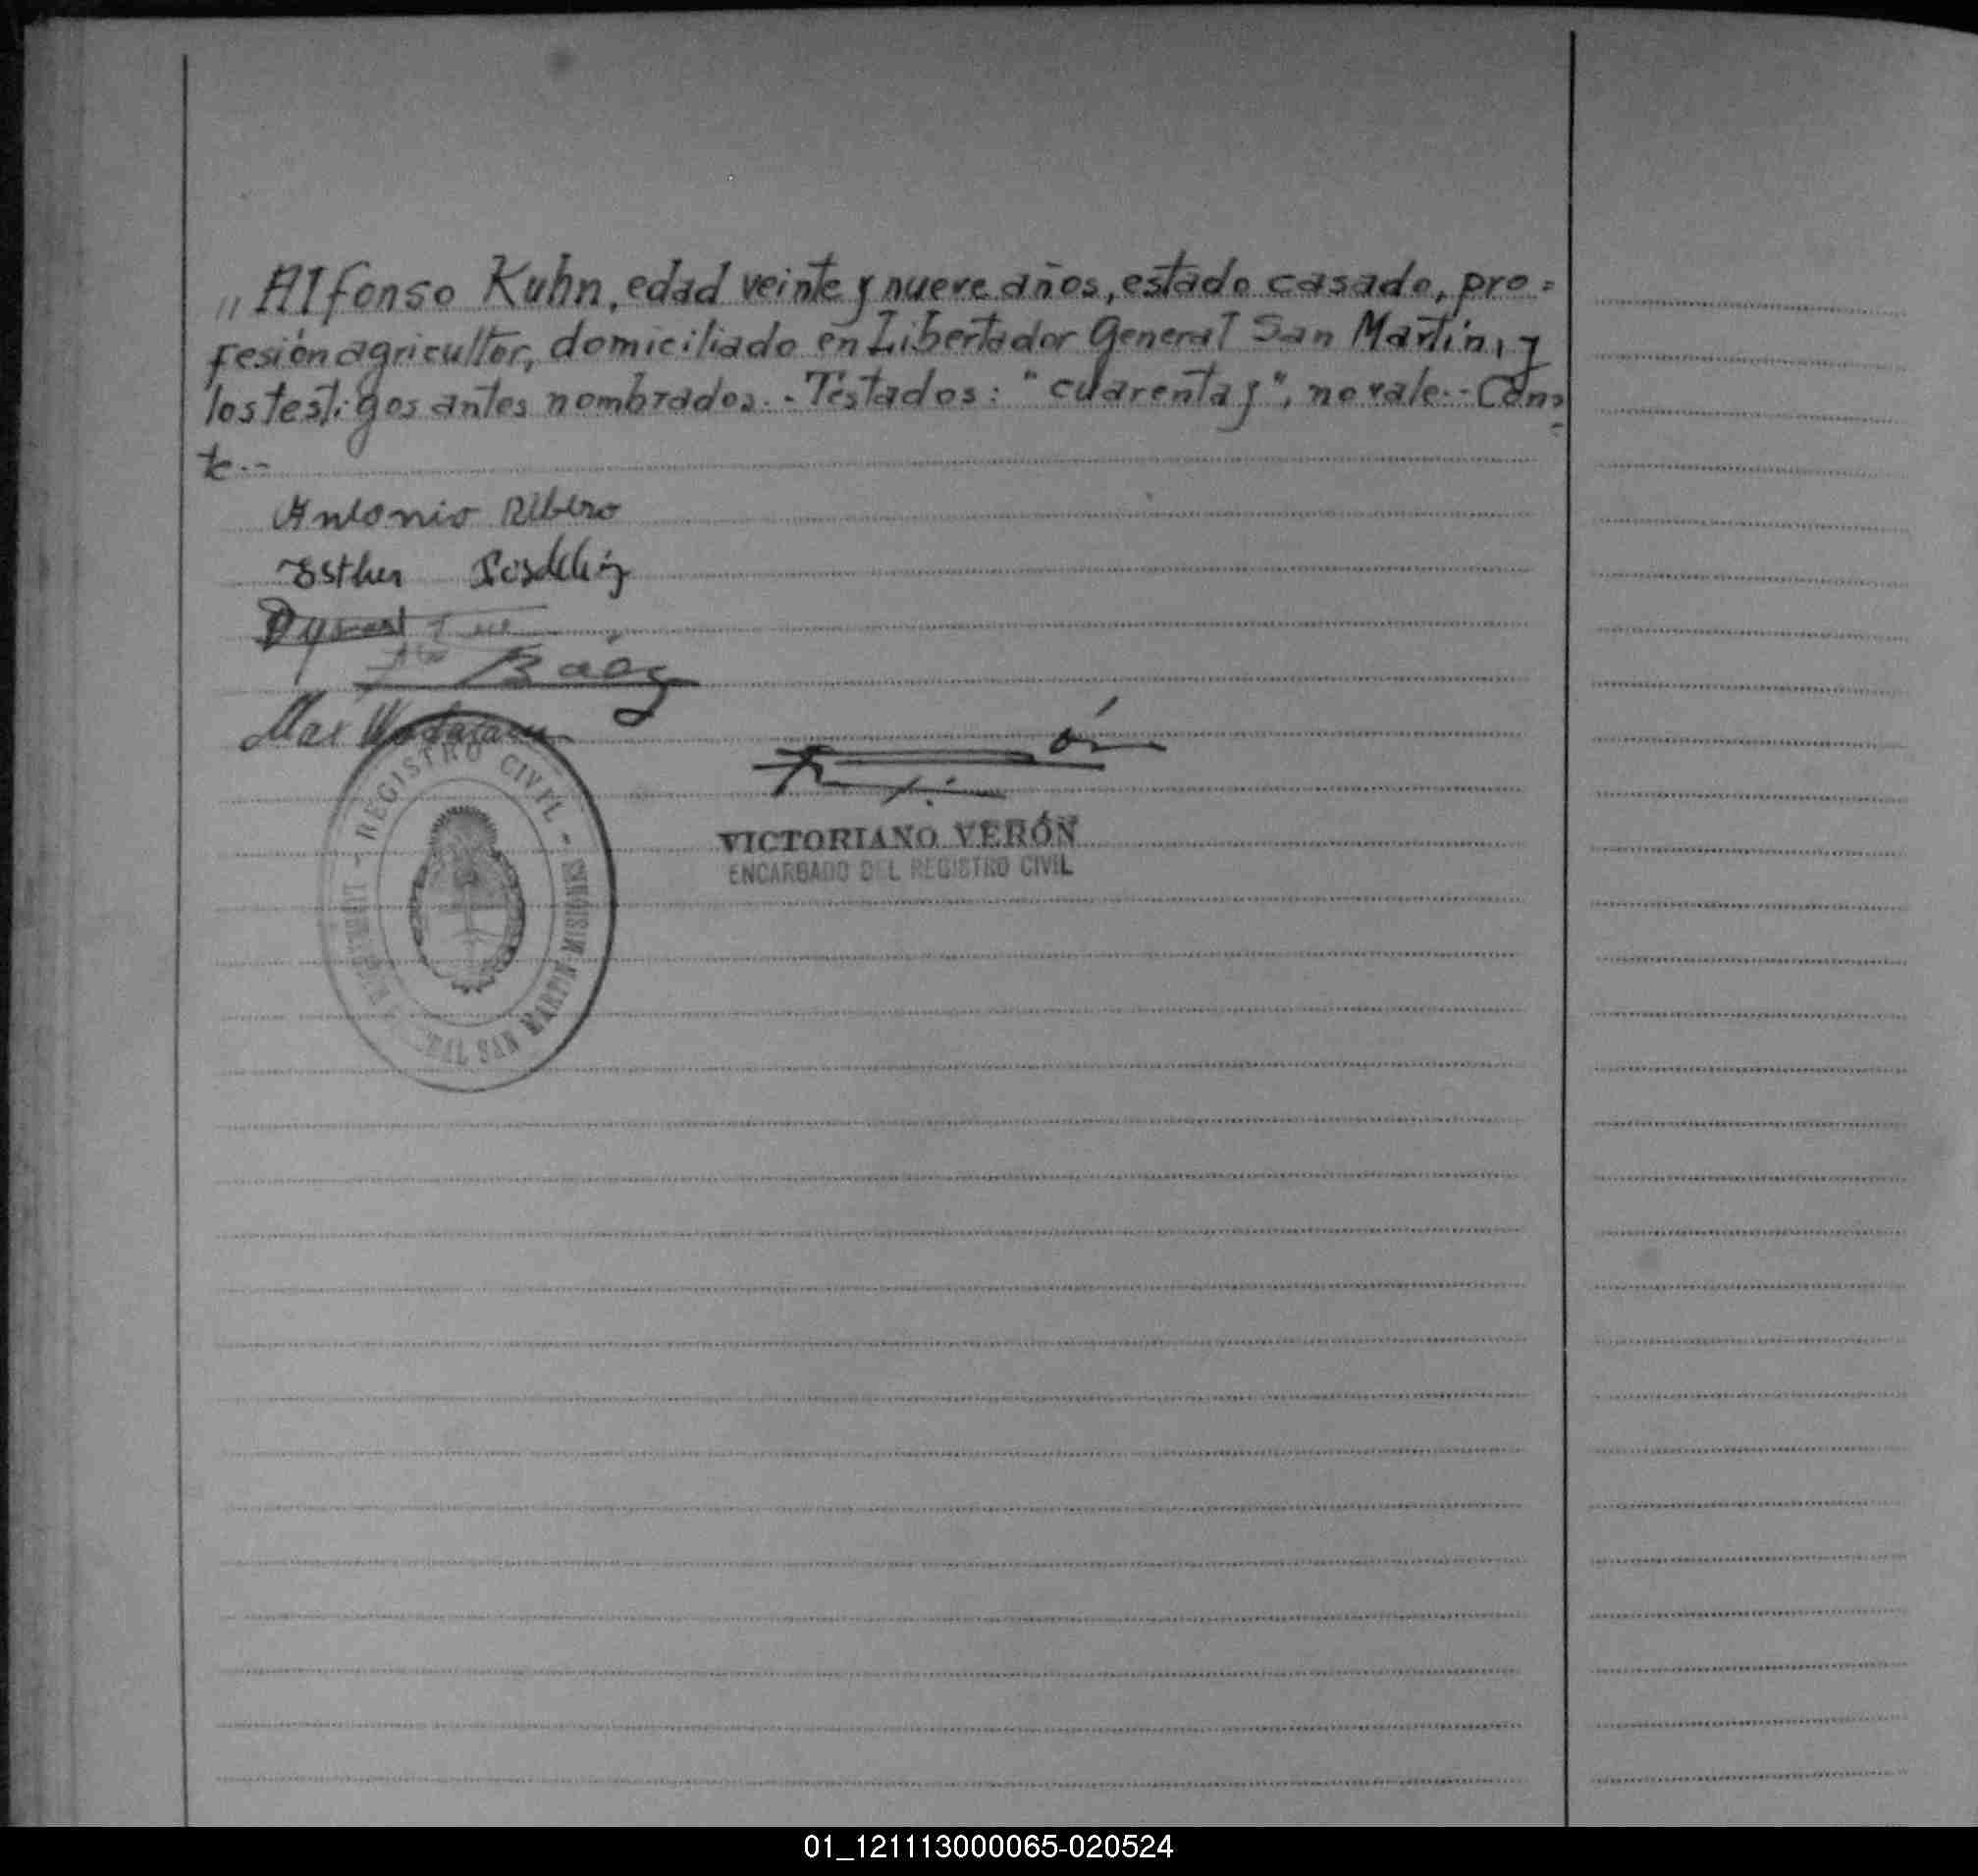 „ Alfonso Kuhn, edad veinte y nueve años, estado casado, pro=
fesión agricultor, domiciliado en Libertador General San Martín, y
los testigos antes nombrados.- Testados: "cuarenta y", no vale.- Cons=
te.--
Antonio Ribero
Esther
Baez
Max
- REGISTRO CIVIL -
LIBERTADOR GRAL SAN MARTIN-MISIONES
VICTORIANO VERÓN
ENCARGADO DEL REGISTRO CIVIL
01_121113000065-020524